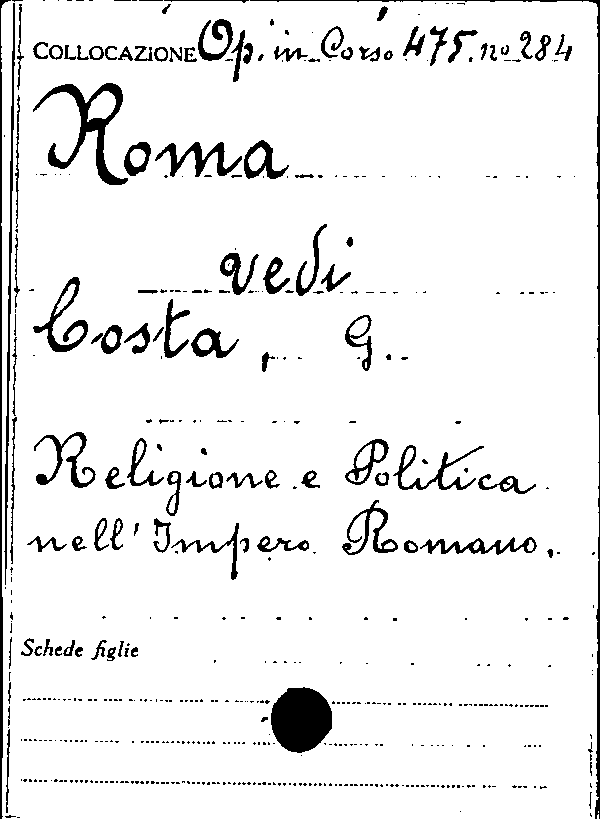 COLLOCAZIONE Op. in Corso 475. no 284
Roma
vedi
Costa, G.
Religione e Politica
nell' Impero Romano.
Schede figlie